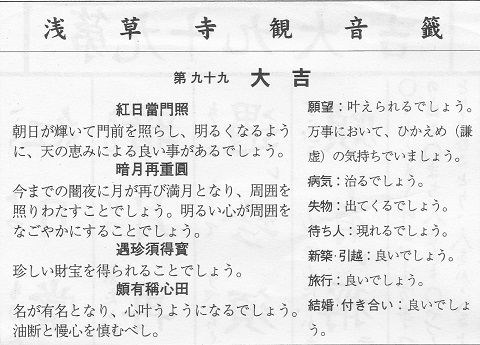 浅草寺観音籤
第九十九 大吉
紅日當門照
朝日が輝いて門前を照らし、明るくなるよう
に、天の恵みによる良い事があるでしょう。
暗月再重圓
今までの闇夜に月が再び満月となり、周囲を
照りわたすことでしょう。明るい心が周囲を
なごやかにすることでしょう。
遇珍須得寳
珍しい財宝を得られることでしょう。
頗有稱心田
名が有名となり、心叶うようになるでしょう。
油断と慢心を慎むべし。
願望:叶えられるでしょう。
万事において、ひかえめ(謙
虚)の気持ちでいましょう。
病気:治るでしょう。
失物:出てくるでしょう。
待ち人:現れるでしょう。
新築・引越:良いでしょう。
旅行:良いでしょう。
結婚・付き合い:良いでしょ
う。